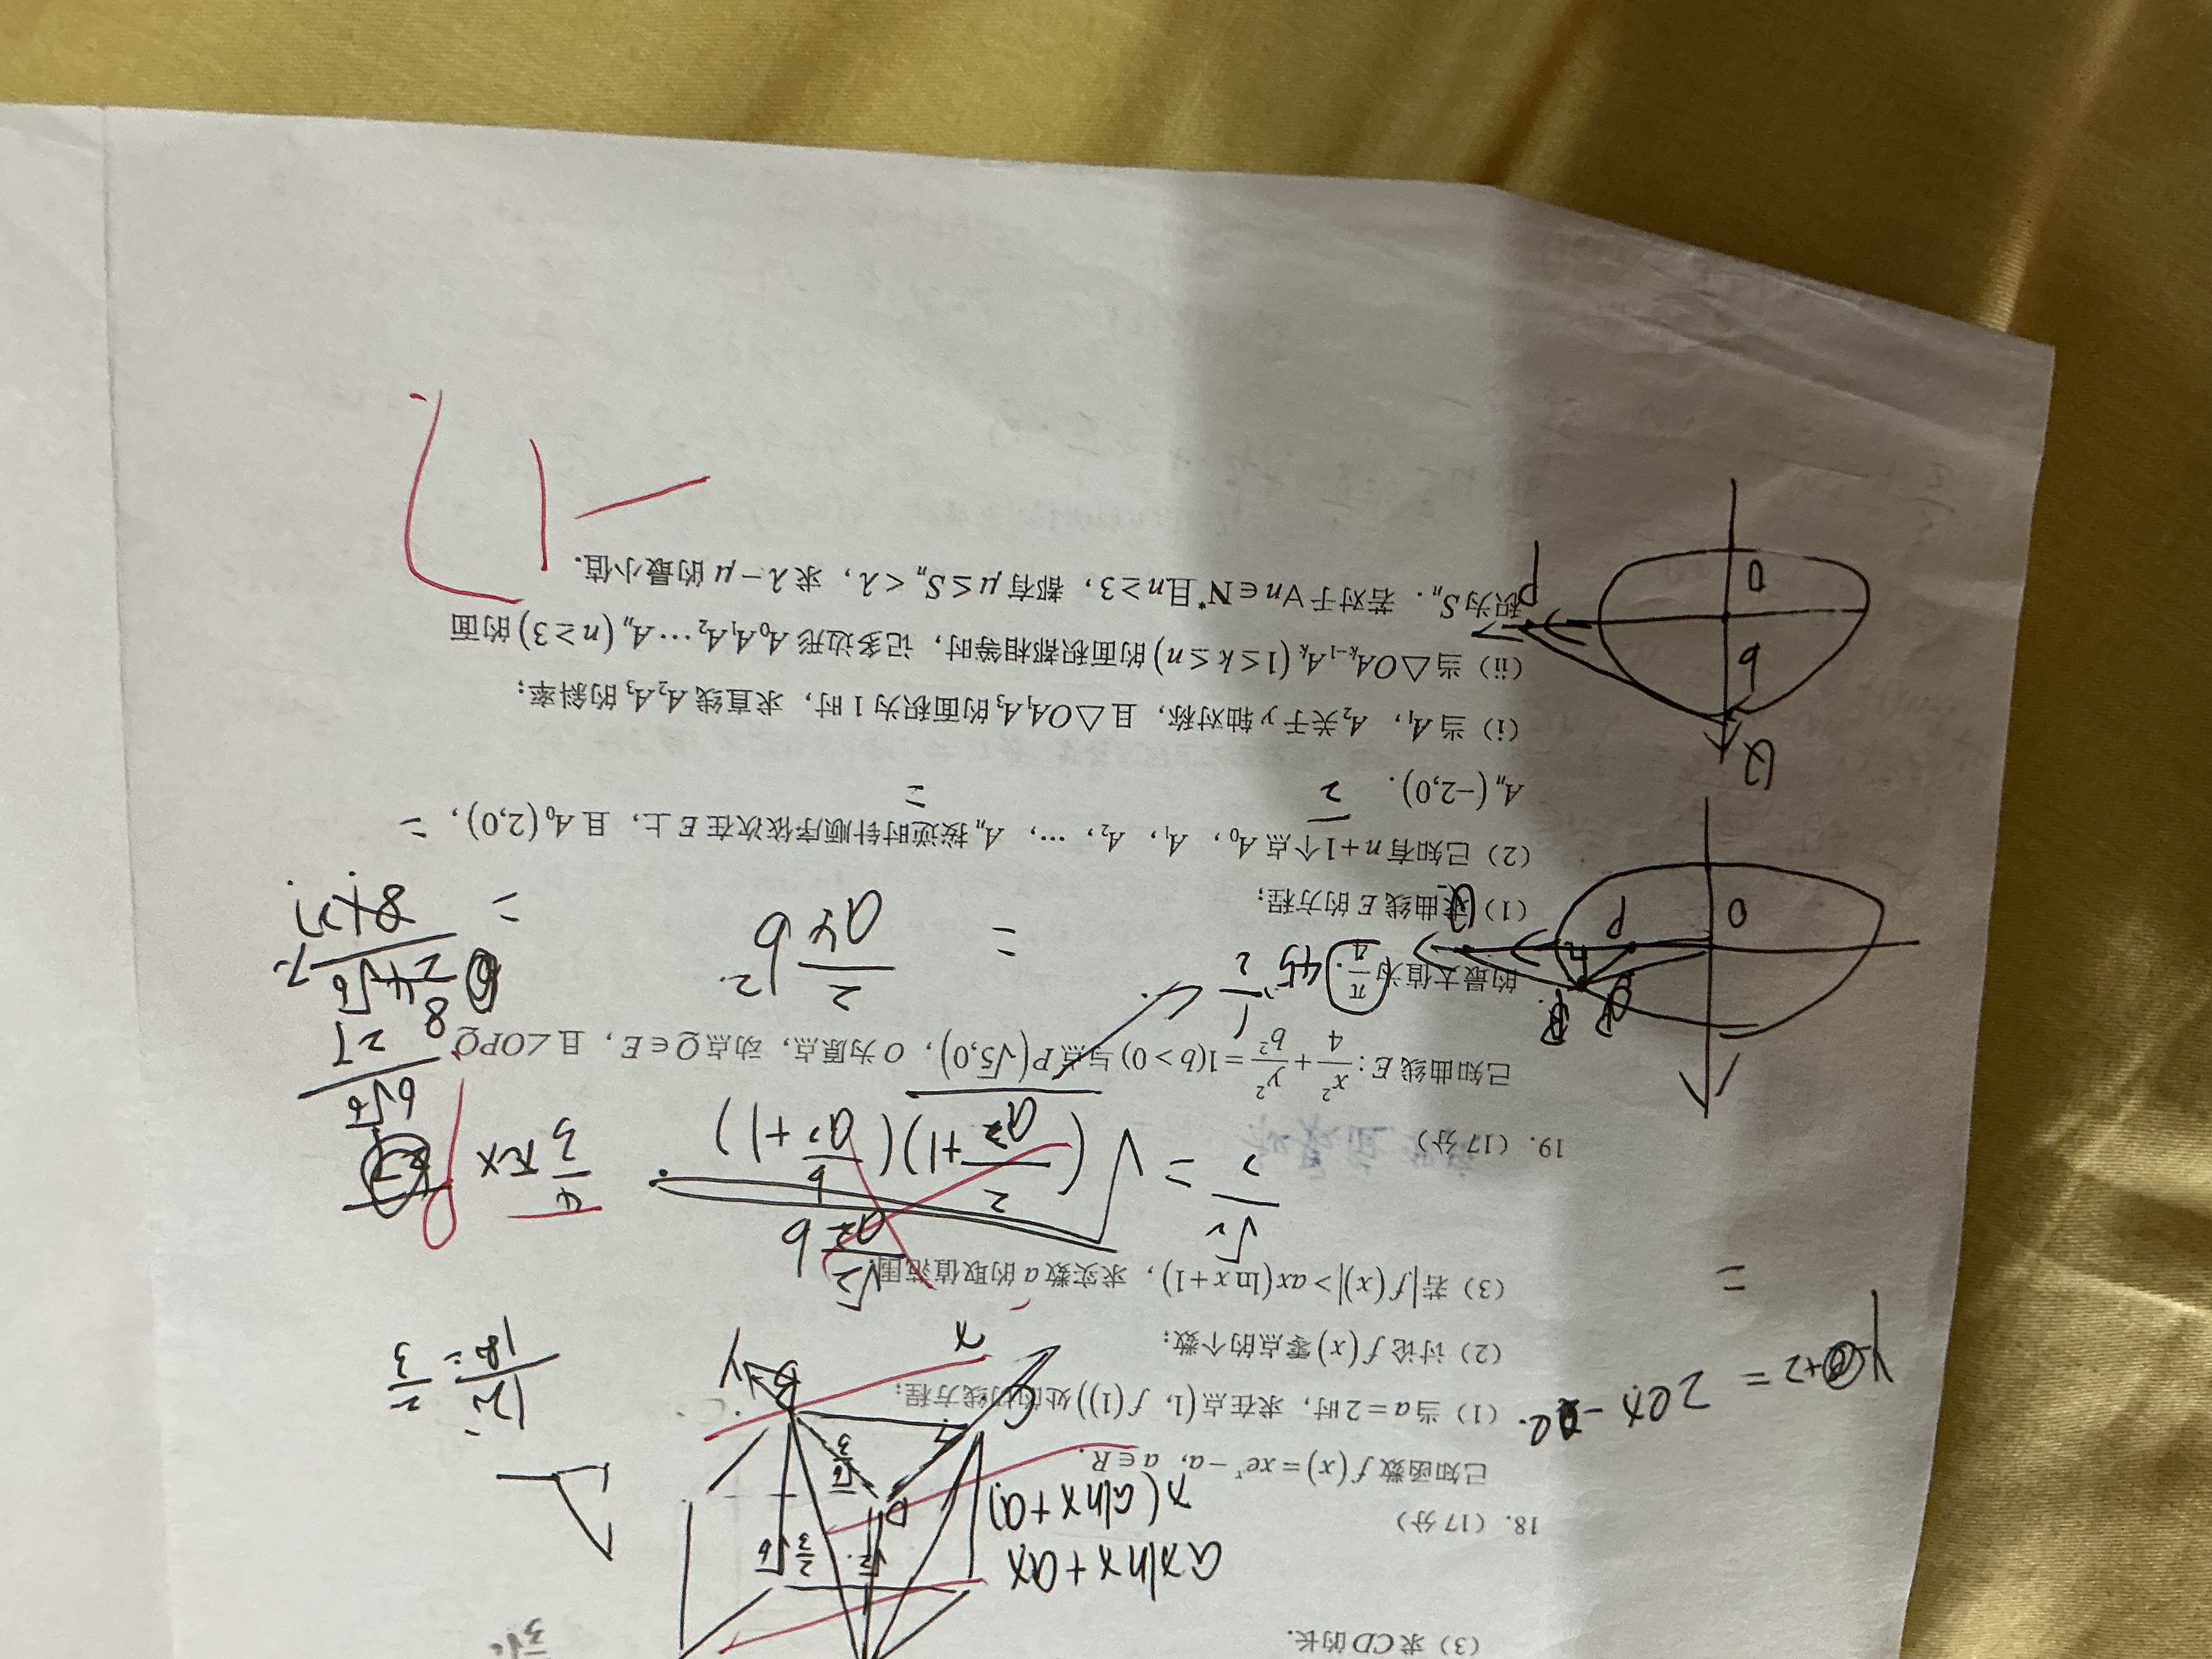 (3) 求CD的长.
18. (17分)
已知函数 f(x)=xeˣ-a, a∈R.
(1) 当a=2时, 求在点(1, f(1))处的切线方程;
(2) 讨论 f(x)零点的个数;
(3) 若|f(x)|>ax(ln x+1), 求实数a的取值范围.
19. (17分)
已知曲线E: x²/4+y²/b²=1(b>0)与点P(√5,0), O为原点, 动点Q∈E, 且∠OPQ
的最大值为π/4.
(1) 求曲线E的方程;
(2) 已知有n+1个点A₀, A₁, A₂, …, Aₙ按逆时针顺序依次在E上, 且A₀(2,0),
Aₙ(-2,0).
(i) 当A₁, A₂关于y轴对称, 且△OA₁A₃的面积为1时, 求直线A₂A₃的斜率;
(ii) 当△OAₖ₋₁Aₖ(1≤k≤n)的面积都相等时, 记多边形A₀A₁A₂…Aₙ(n≥3)的面
积为Sₙ. 若对于∀n∈N*且n≥3, 都有μ≤Sₙ<λ, 求λ-μ的最小值.
axlnx+ax
x(alnx+a)
12/18=2/3
45°
1/2